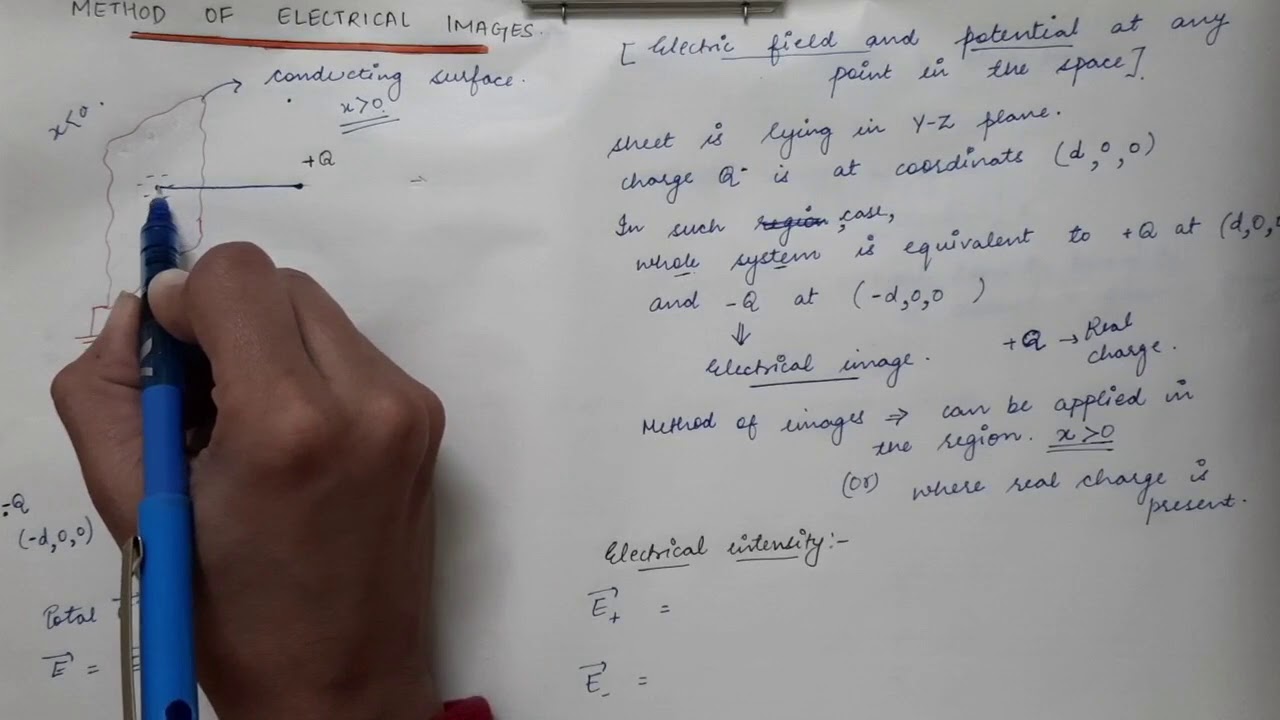 METHOD OF ELECTRICAL IMAGES.
conducting surface.
x<0.
x>0.
+Q
-Q
(-d,0,0)
Total
E⃗ =
[Electric field and potential at any
point in the space].
sheet is lying in Y-Z plane.
charge Q is at coordinats (d,0,0)
In such region, case,
whole system is equivalent to +Q at (d,0,0
and -Q at (-d,0,0 )
⇓
Electrical image.
+Q → Real
charge.
Method of images ⇒ can be applied in
the region. x>0
(or) where real charge is
present.
Electrical intensity:-
E⃗₊ =
E⃗₋ =